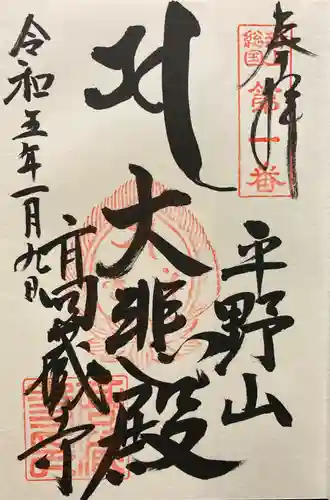 奉拝
総国
第一番
平野山
大悲殿
令和五年一月九日
高蔵寺